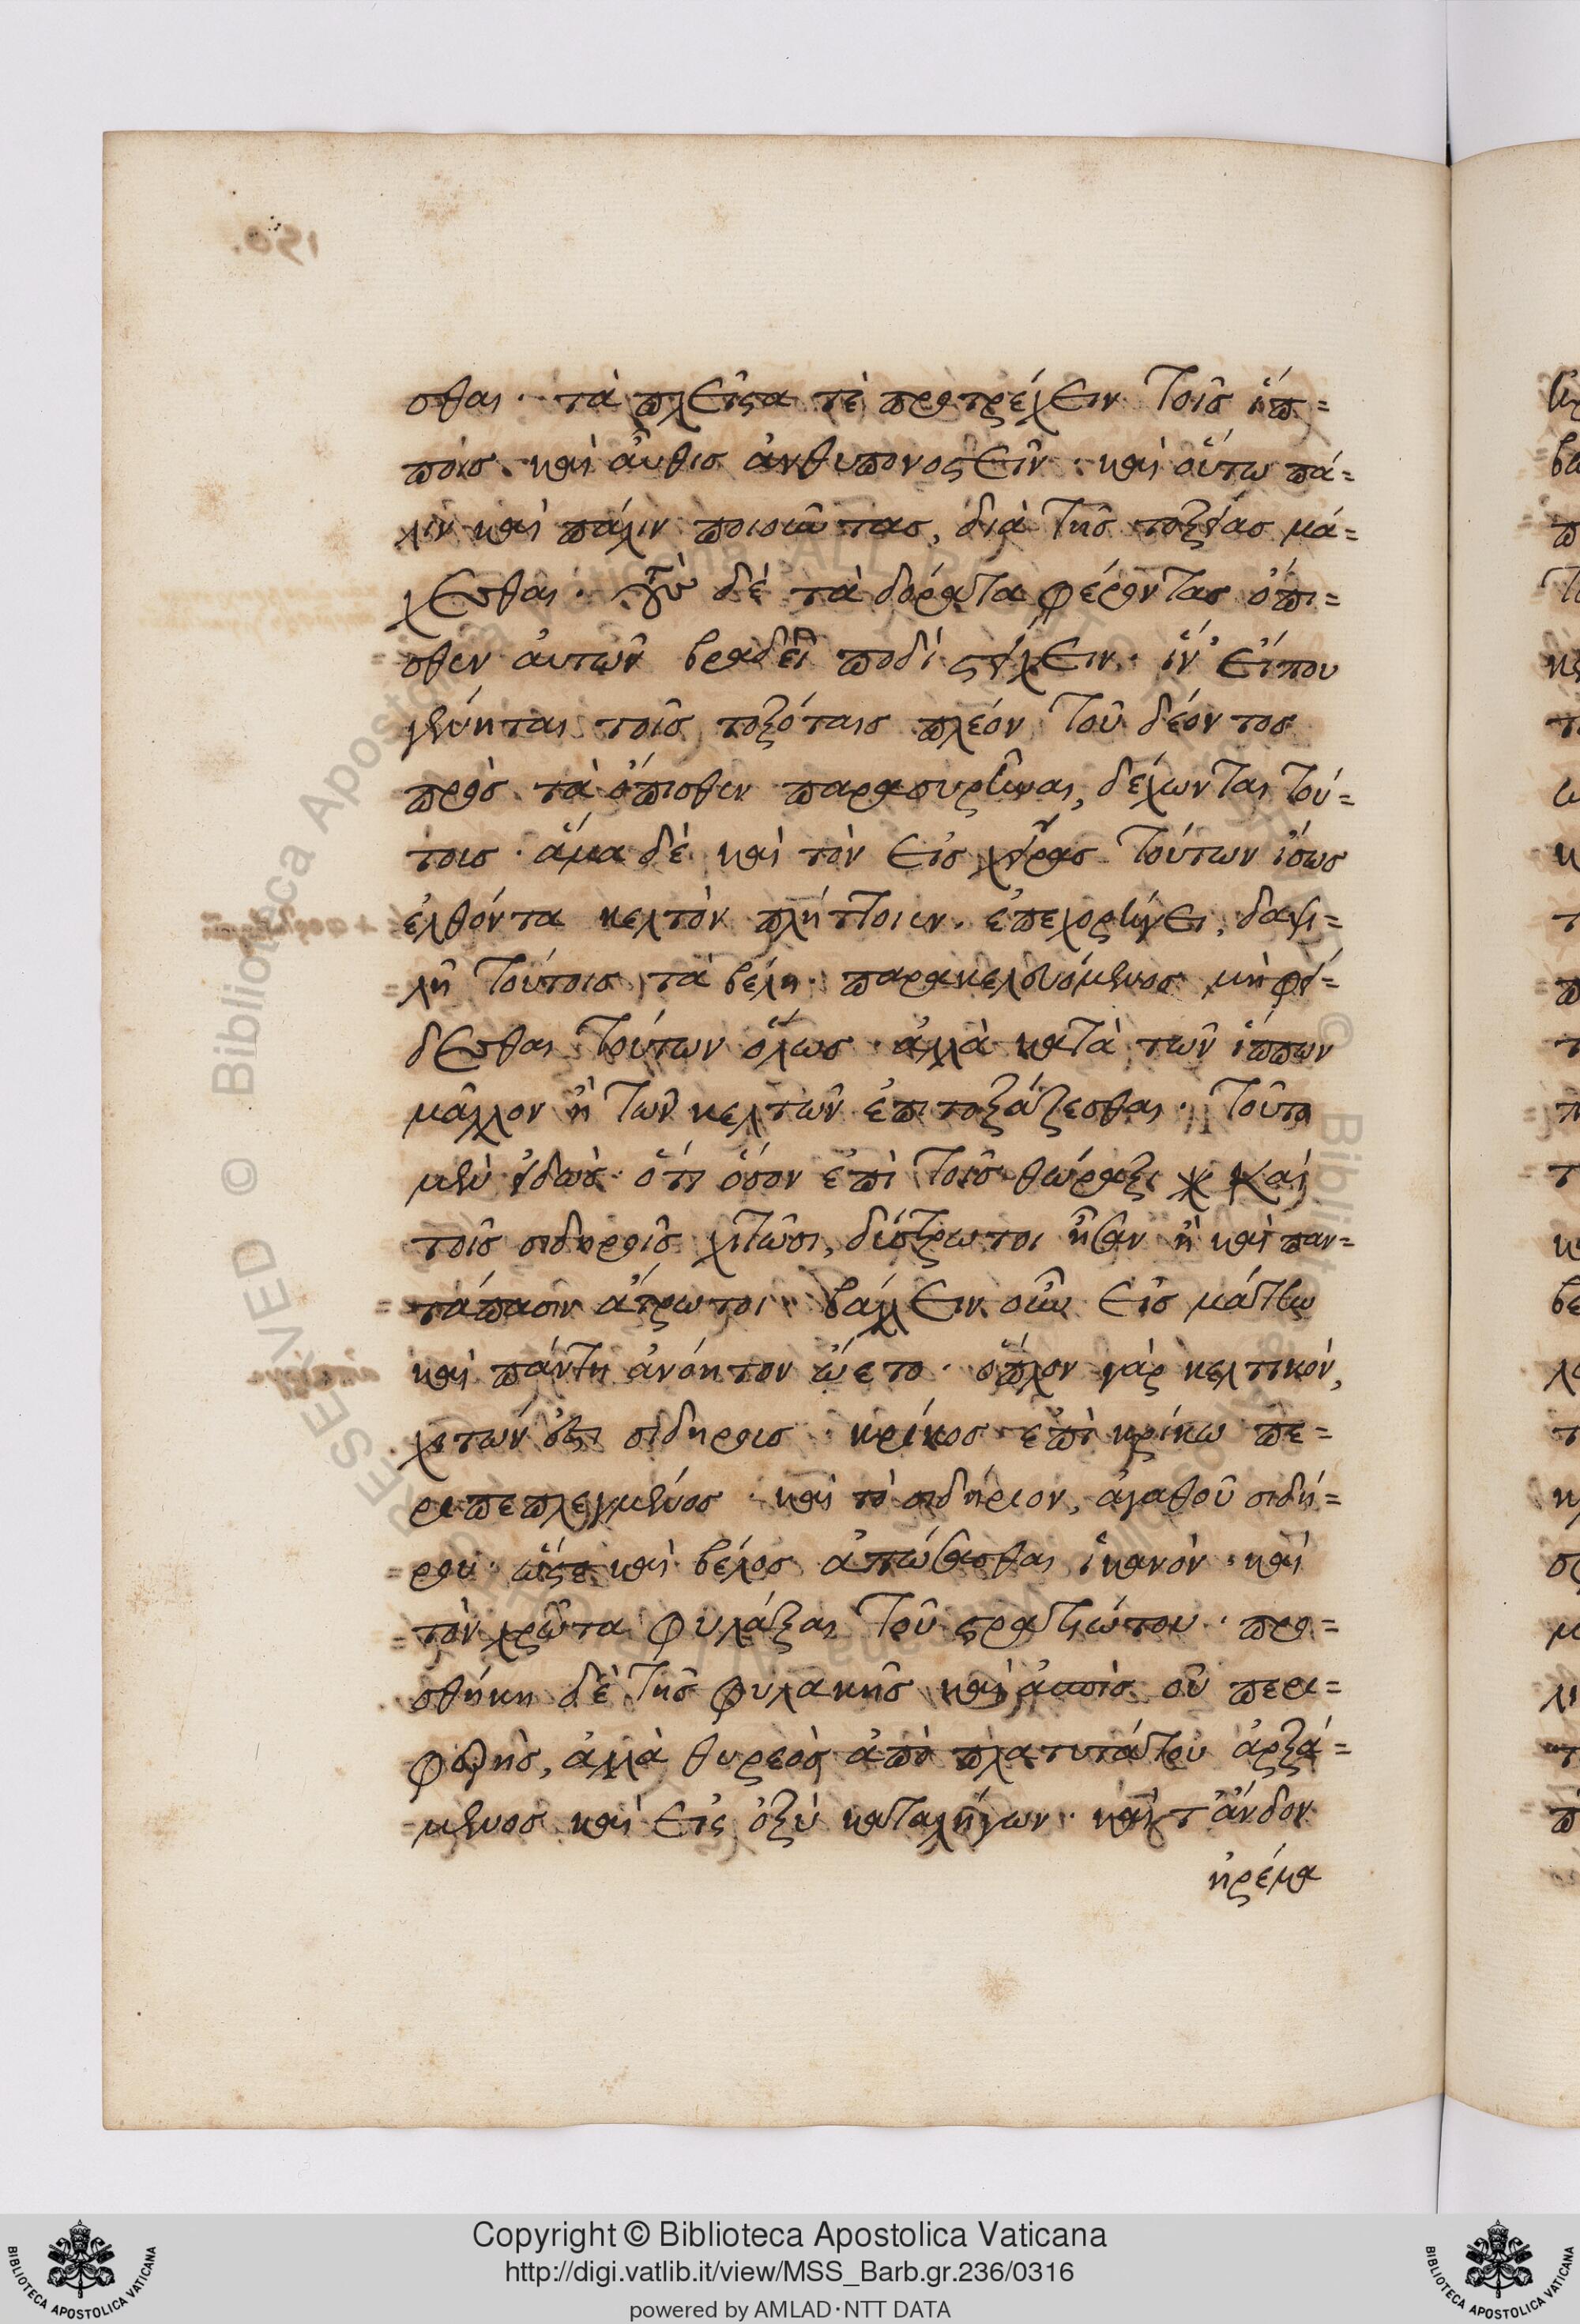 σθαι· τὰ πλεῖστα τὲ προτρέχειν τοῖς ἵπ=
ποις. καὶ αὖθις ἀνθυπονοστεῖν· καὶ οὕτω πά=
λιν καὶ πάλιν ποιοῦντας, διὰ τῆς τοξείας μά=
χεσθαι. τοὺς δὲ τὰ δόρατα φέροντας ὄπι=
σθεν αὐτῶν βραδεῖ ποδὶ στείχειν. ἵν' εἴπου
γένηται τοῖς τοξόταις πλέον τοῦ δέοντος
πρὸς τὰ ὄπισθεν παρασυρῆναι, δέχωνται τού=
τοις. ἅμα δὲ καὶ τὸν εἰς χεῖρας τούτων ἴσως
ἐλθόντα κελτὸν πλήττοιεν. ἐπεχορήγει, δαψι=
λῆ τούτοις τὰ βέλη. παρακελευόμενος μὴ φεί=
δεσθαι τούτων ὅλως. ἀλλὰ κατὰ τῶν ἵππων
μᾶλλον ἢ τῶν κελτῶν ἐπιτοξάζεσθαι. τοῦτο
μὲν εἰδὼς· ὅτι ὅσον ἐπὶ τοῖς θώραξι καὶ
τοῖς σιδηροῖς χιτῶσι, δύστρωτοι ἦσαν ἢ καὶ παν=
τάπασιν ἄτρωτοι. βάλλειν οὖν εἰς μάτην
καὶ πάντη ἀνόητον ᾤετο. ὅπλον γὰρ κελτικόν,
χιτών ἐστι σιδηροῖς. κρίκος ἐπὶ κρίκω πε=
ριπεπλεγμένος. καὶ τὸ σιδήριον, ἀγαθοῦ σιδή=
ρου. ὥστε καὶ βέλος ἀπώσασθαι ἱκανὸν. καὶ
τὸν χρῶτα φυλάξαι τοῦ στρατιώτου. προ=
σθήκη δὲ τῆς φυλακῆς καὶ ἀσπὶς οὐ περι=
φερὴς, ἀλλὰ θυρεὸς ἀπὸ πλατυτάτου ἀρξά=
μενος καὶ εἰς ὀξὺ καταλήγων. καὶ τἄνδον
ἠρέμα
Copyright © Biblioteca Apostolica Vaticana
http://digi.vatlib.it/view/MSS_Barb.gr.236/0316
powered by AMLAD·NTT DATA